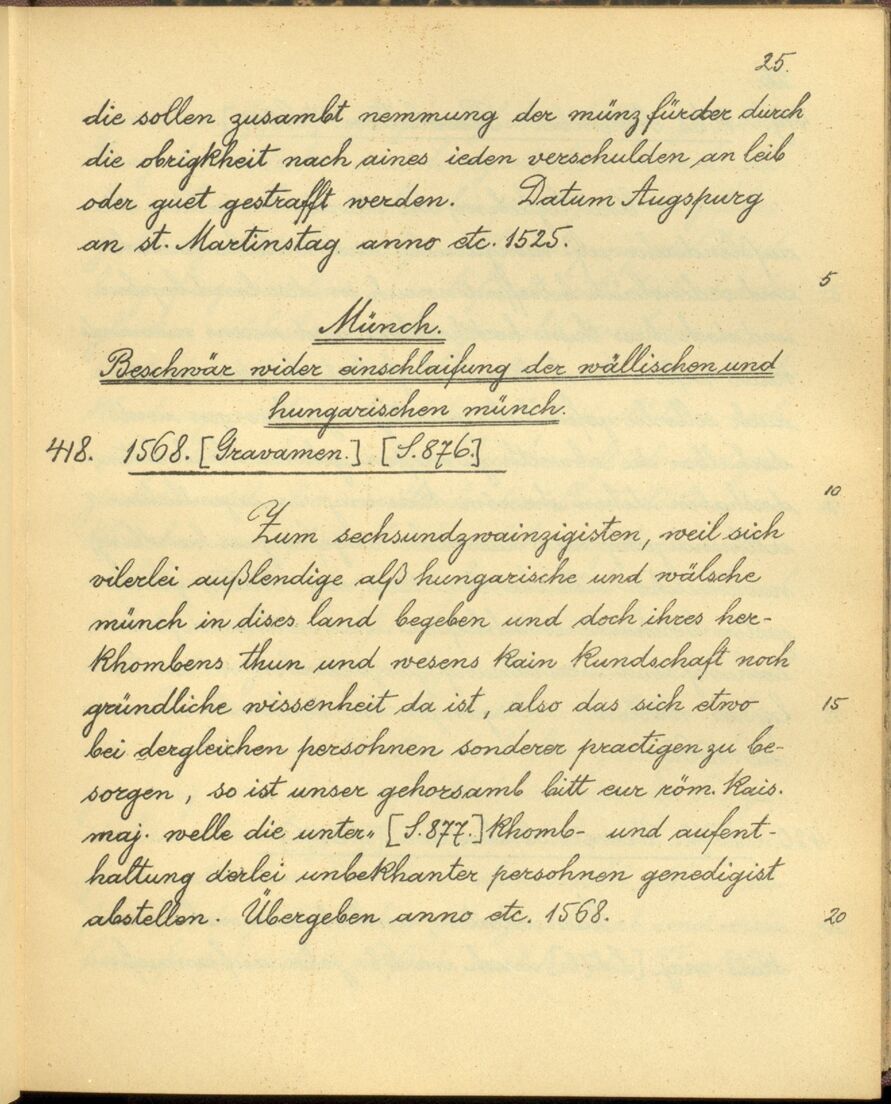 25.
die sollen zusambt nemmung der münz fürder durch
die obrigkheit nach aines ieden verschulden an leib
oder guet gestrafft werden. Datum Augspurg
an st. Martinstag anno etc. 1525.
5
Münch.
Beschwär wider einschlaifung der wällischen und
hungarischen münch.
418. 1568. [Gravamen.] [S. 876]
10
Zum sechsundzwainzigisten, weil sich
vilerlei außlendige alß hungarische und wälsche
münch in dises land begeben und doch ihres her-
khombens thun und wesens kain kundschaft noch
gründliche wissenheit da ist, also das sich etwo
15
bei dergleichen persohnen sonderer practigen zu be-
sorgen, so ist unser gehorsamb bitt eur röm. kais.
maj. welle die unter„ [S. 877.] khomb- und aufent-
haltung derlei unbekhanter persohnen genedigist
abstellen. Übergeben anno etc. 1568.
20